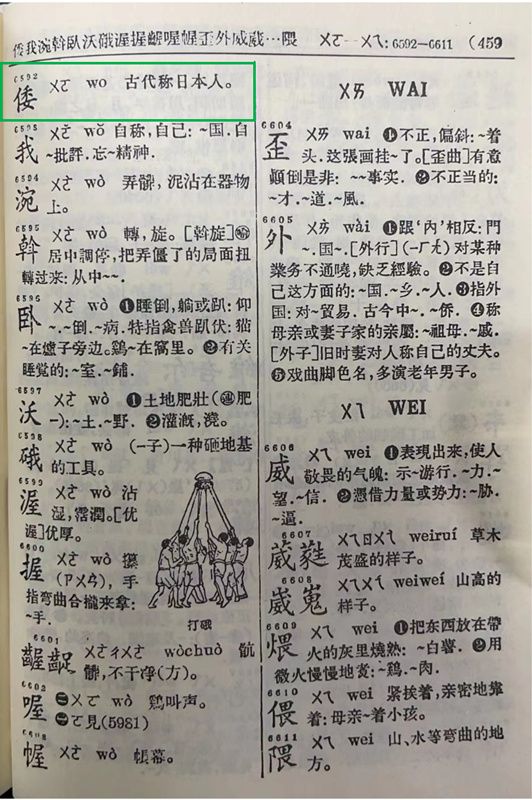 倭我涴斡臥沃硪渥握齷喔幄歪外威葳…隈 ㄨㄛ—ㄨㄟ: 6592—6611 (459
6592
倭 ㄨㄛ wo 古代称日本人。
我 ㄨㄛˇ wǒ 自称,自己: ~国. 自
~批評. 忘~精神.
6594
涴 ㄨㄛˋ wò 弄髒, 泥沾在器物
上。
6595
斡 ㄨㄛˋ wò 轉, 旋。[斡旋]
居中調停, 把弄僵了的局面扭
轉过来: 从中~~.
6596
臥 ㄨㄛˋ wò ❶睡倒, 躺或趴: 仰
~. ~倒. ~病. 特指禽兽趴伏: 猫
~在爐子旁边. 鷄~在窩里. ❷有关
睡觉的: ~室. ~鋪.
6597
沃 ㄨㄛˋ wò ❶土地肥壯(肥
一): ~土. ~野. ❷灌漑, 澆。
6598
硪 ㄨㄛˋ wò (一子)一种砸地基
的工具。
6599
渥 ㄨㄛˋ wò 沾
湿, 霑潤。[优
渥]优厚。
6600
握 ㄨㄛˋ wò 攥
(ㄗㄨㄢˋ), 手
指弯曲合攏来拿:
~手.
打硪
6601
齷齪 ㄨㄛˋㄔㄨㄛˋ wòchuò 骯
髒, 不干净(方)。
6602
喔 ㊀ㄨㄛ wo 鷄叫声。
㊁ㄛ見(5981)
幄 ㄨㄛˋ wò 帳幕。
ㄨㄞ WAI
6604
歪 ㄨㄞ wai ❶不正, 偏斜: ~着
头. 这張画挂~了. [歪曲]有意
顚倒是非: ~~事实. ❷不正当的:
~才. ~道. ~風.
6605
外 ㄨㄞˋ wài ❶跟‘內’相反: 門
~. 国~. [外行](一ㄏㄤˊ)对某种
業务不通曉, 缺乏經驗。❷不是自
己这方面的: ~国. ~乡. ~人. ❸指外
国: 对~貿易. 古今中~. ~侨. ❹称
母亲或妻子家的亲屬: ~祖母. ~戚.
[外子]旧时妻对人称自己的丈夫。
❺戏曲脚色名, 多演老年男子。
ㄨㄟ WEI
6606
威 ㄨㄟ wei ❶表現出来, 使人
敬畏的气魄: 示~游行. ~力. ~
望. ~信. ❷憑借力量或势力: ~胁.
~逼.
6607
葳蕤 ㄨㄟㄖㄨㄟˊ weiruí 草木
茂盛的样子。
6608
崴嵬 ㄨㄟㄨㄟˊ weiweí 山高的
样子。
6609
煨 ㄨㄟ wei ❶把东西放在帶
火的灰里燒熟: ~白薯. ❷用
微火慢慢地煮: ~鷄. ~肉.
6610
偎 ㄨㄟ wei 紧挨着, 亲密地靠
着: 母亲~着小孩.
6611
隈 ㄨㄟ wei 山、水等弯曲的地
方。